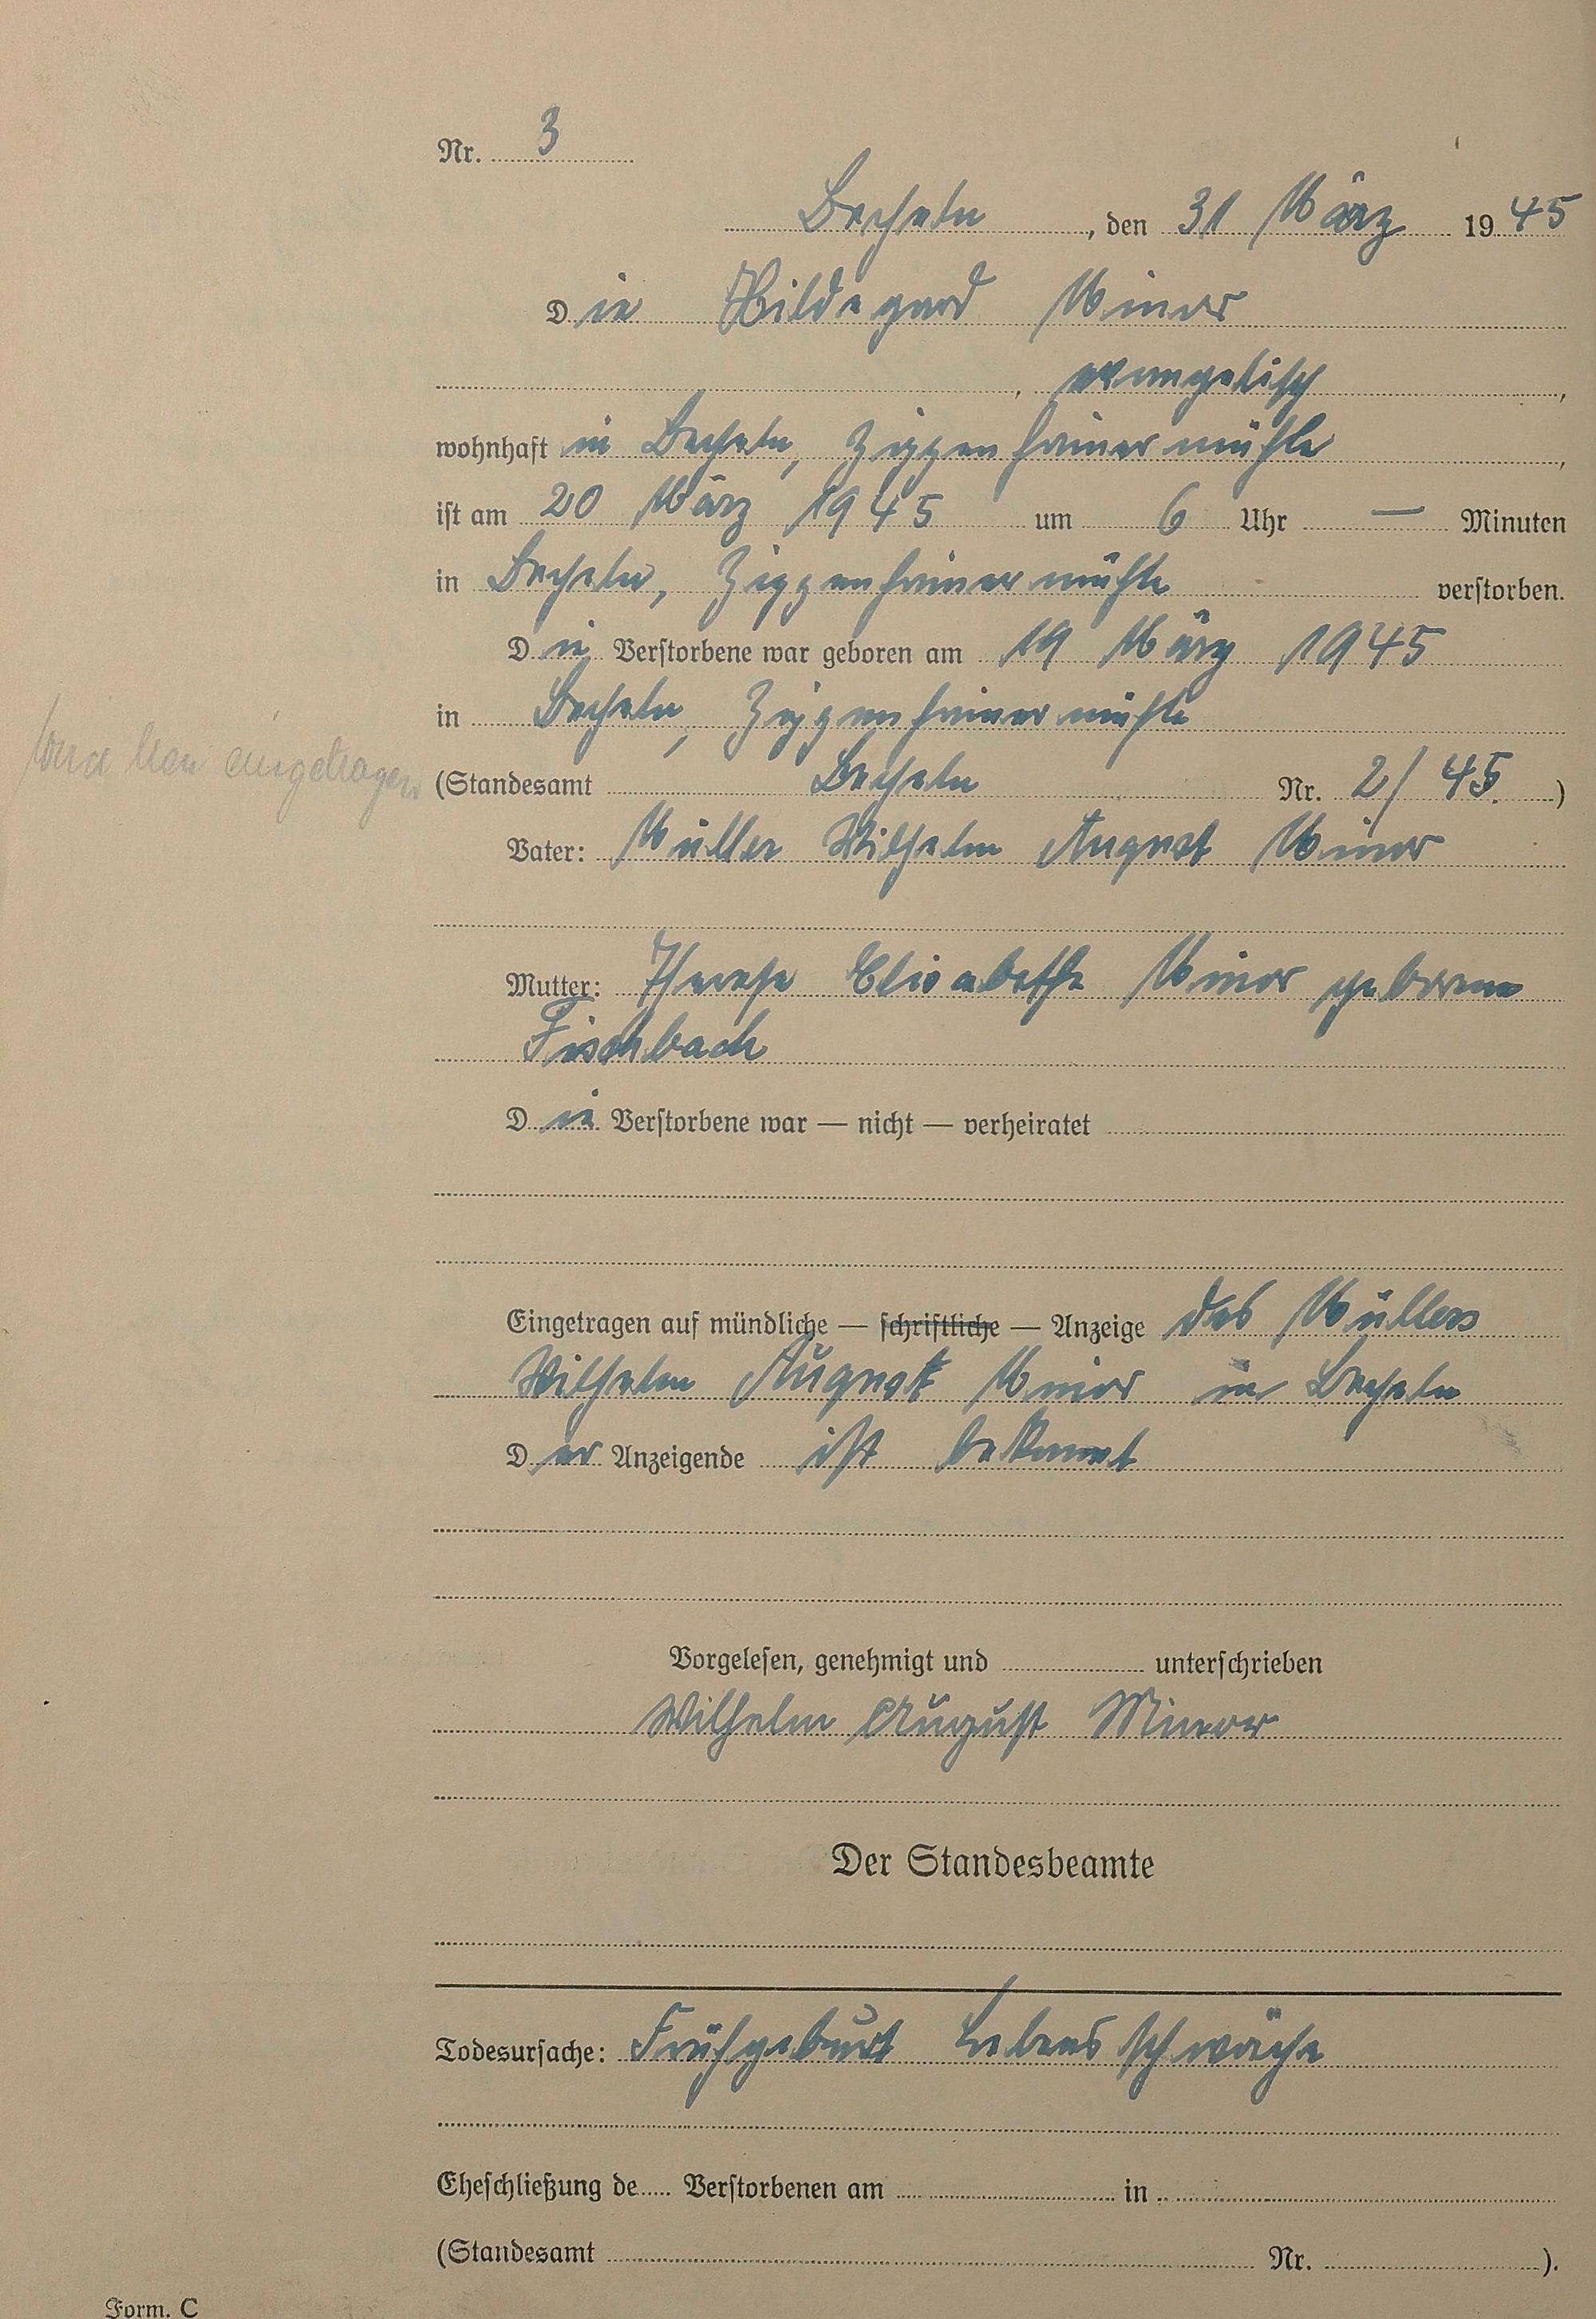 Nr. 3
Becheln, den 31 März 1945
Die Hildegard Minor
, evangelisch,
wohnhaft in Becheln, Zippenhainermühle,
ist am 20 März 1945 um 6 Uhr — Minuten
in Becheln, Zippenhainermühle verstorben.
Die Verstorbene war geboren am 19 März 1945
in Becheln, Zippenhainermühle
wird neu eingetragen
(Standesamt Becheln Nr. 2/45.)
Vater: Müller Wilhelm August Minor
Mutter: Therese Elisabethe Minor geborene
Fischbach
Die Verstorbene war — nicht — verheiratet
Eingetragen auf mündliche — schriftliche — Anzeige des Müllers
Wilhelm August Minor in Becheln
Der Anzeigende ist bekannt
Vorgelesen, genehmigt und unterschrieben
Wilhelm August Minor
Der Standesbeamte
Todesursache: Frühgeburt Lebensschwäche
Eheschließung de Verstorbenen am in
(Standesamt Nr. ).
Form. C